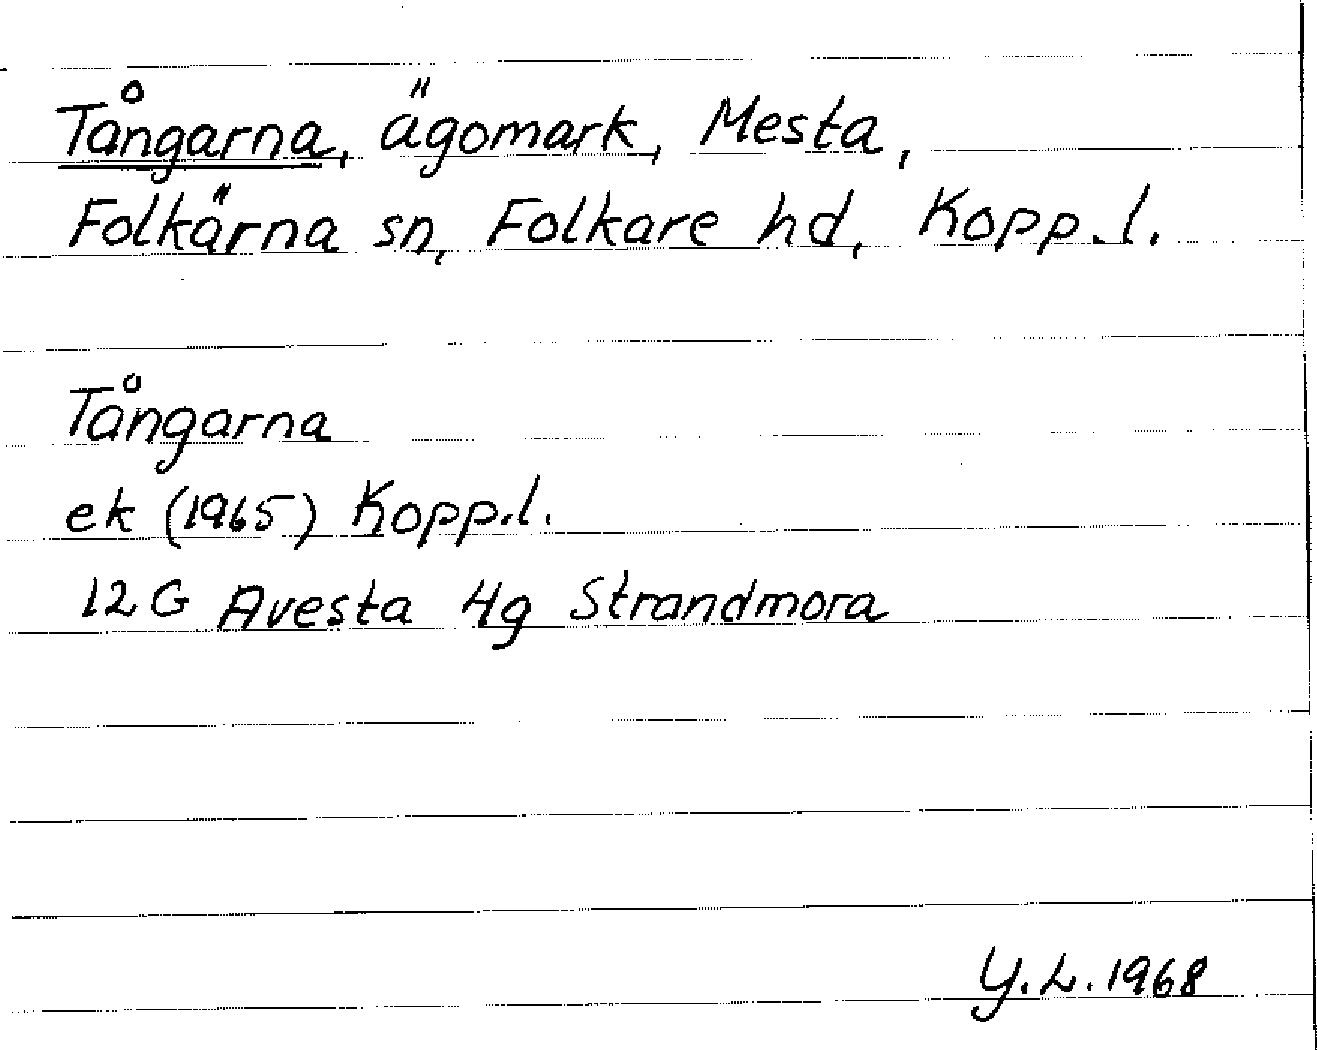 Tångarna, ägomark, Mesta,
Folkärna sn, Folkare hd, Kopp.l.
Tångarna
ek (1965) Kopp.l.
12G Avesta 4g Strandmora
Y.L. 1968